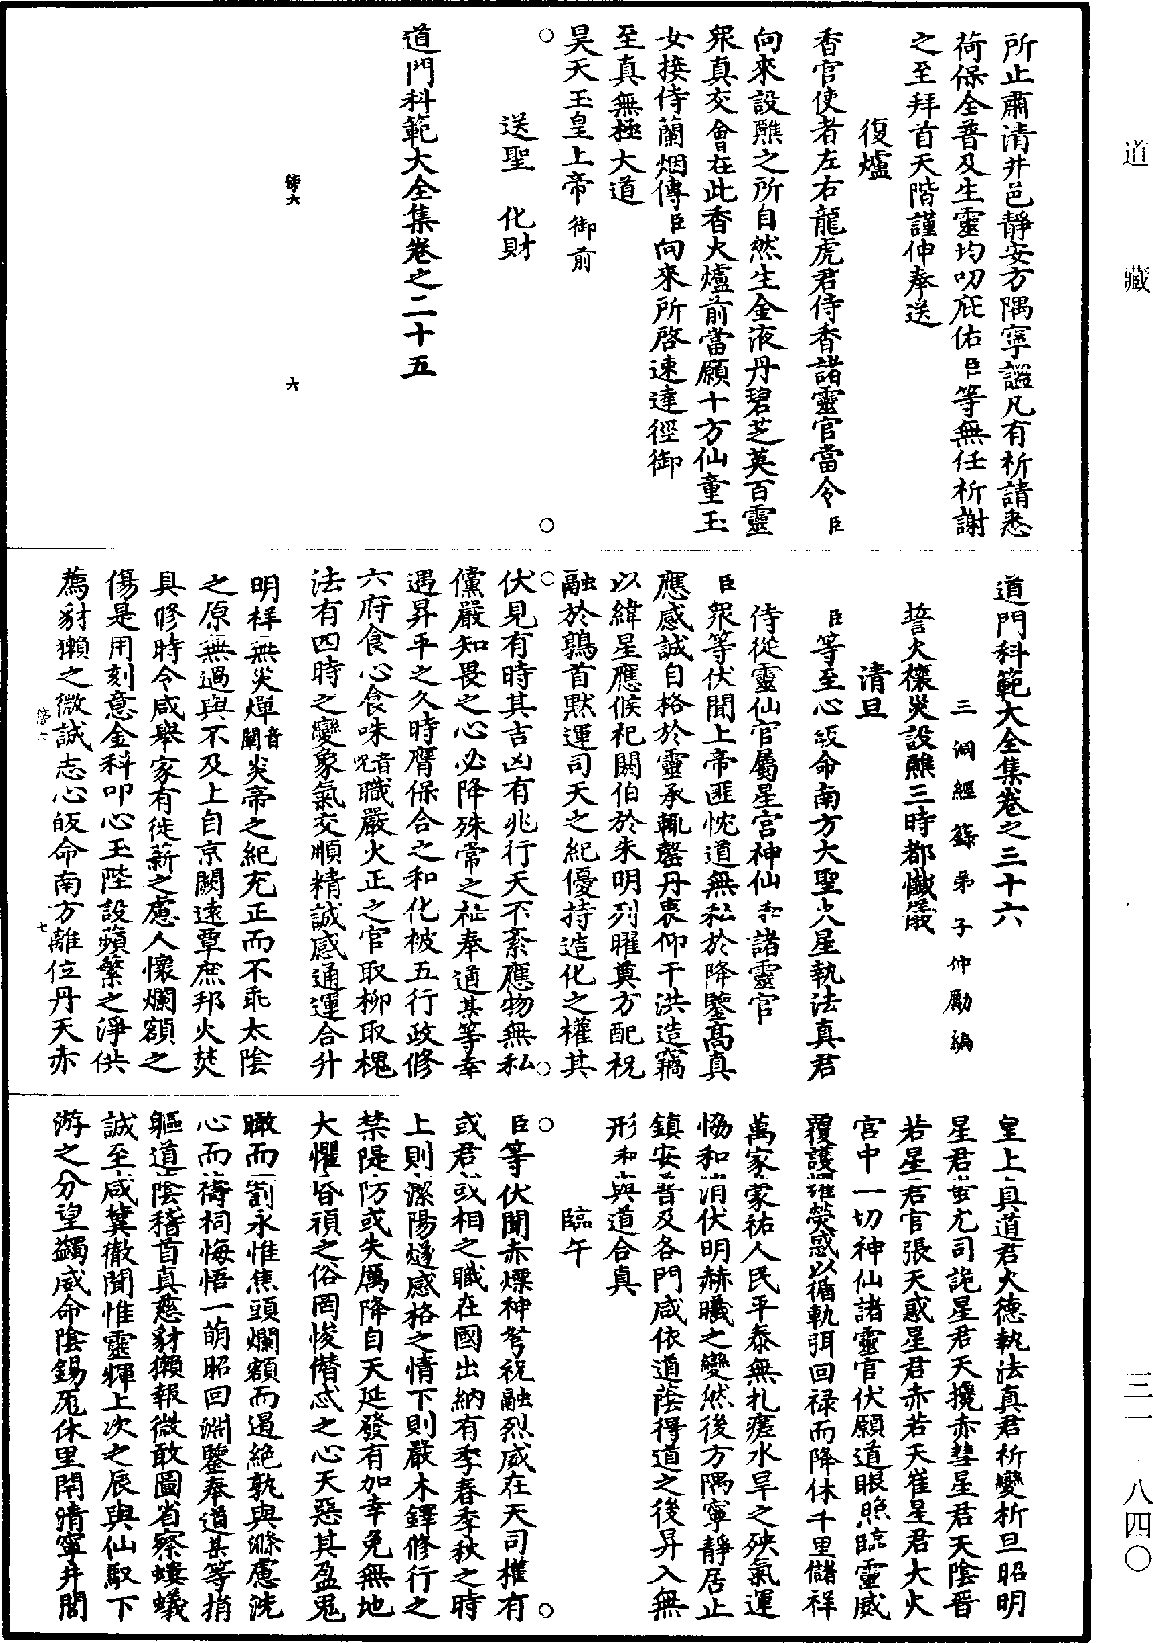 所止肅清井邑靜安方隅寧謐凡有祈請悉
荷保全普及生靈均叨庇佑臣等無任祈謝
之至拜首天階謹伸奉送
復爐
香官使者左右龍虎君侍香諸靈官當令臣
向來設醮之所自然生金液丹碧芝英百靈
衆真交會在此香火爐前當願十方仙童玉
女接侍蘭烟傳臣向來所啓速達徑御
至真無極大道
昊天玉皇上帝御前
送聖 化財
道門科範大全集卷之二十五
六
道門科範大全集卷之三十六
三洞經籙弟子仲勵編
誓火禳災設醮三時都懺儀
清旦
臣等至心皈命南方大聖火星執法真君
侍從靈仙官屬星宮神仙和諸靈官
臣衆等伏聞上帝匪忱道無私於降鑒高真
應感誠自格於靈承輒罄丹衷仰干洪造竊
以緯星應候祀閼伯於朱明列曜奠方配祝
融於鶉首默運司天之紀優持造化之權其
伏見有時其吉凶有兆行天不紊應物無私
儻嚴知畏之心必降殊常之祉奉道某等幸
遇昇平之久時膺保合之和化被五行政修
六府食心食咮音咒職嚴火正之官取柳取槐
法有四時之變象氣交順精誠感通運合升
明祥無災燀音闡炎帝之紀充正而不乖太陰
之原無過與不及上自京闕遠覃庶邦火焚
具修時令咸舉家有徙薪之慮人懷爛額之
傷是用刻意金科叩心玉陛設蘋蘩之淨供
薦豺獺之微誠志心皈命南方離位丹天赤
七
皇上真道君大德執法真君祈變祈旦昭明
星君蚩尤司詭星君天攙赤彗星君天陰晉
若星君官張天惑星君赤若天雀星君大火
宮中一切神仙諸靈官伏願道眼照臨靈威
覆護維熒惑以循軌弭回祿而降休千里儲祥
萬家蒙祐人民平泰無札瘥水旱之殃氣運
協和消伏明赫曦之變然後方隅寧靜居止
鎮安普及各門咸依道蔭得道之後昇入無
形和與道合真
臨午
臣等伏聞赤熛神弩祝融烈威在天司權有
或君或相之職在國出納有季春季秋之時
上則漈陽燧感格之情下則嚴木鐸修行之
禁隄防或失厲降自天延發有加幸免無地
大懼昏禎之俗罔悛僭忒之心天惡其盈鬼
瞰而罰永惟焦頭爛額而遏絕孰與滌慮洗
心而禱祠悔悟一萌昭回淵鑒奉道某等捐
軀道陰稽首真慈豺獺報微敢圖省察螻蟻
誠至咸冀徹聞惟靈輝上次之辰與仙馭下
游之分望蠲威命陰錫冞休里閈清寧井閭
道藏
三一 八四〇